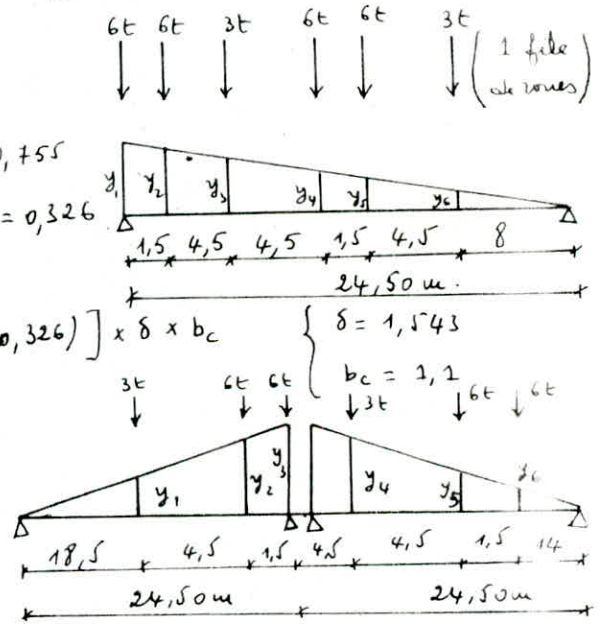 6t 6t 3t 6t 6t 3t
(1 file
de roues)
0,755
= 0,326
y1 y2 y3 y4 y5 y6
1,5 4,5 4,5 1,5 4,5 8
24,50 m.
0,326) ] x δ x bc { δ = 1,543
bc = 1,1
3t 6t 6t 3t 6t 6t
y1 y2 y3 y4 y5 y6
18,5 4,5 1,5 4,5 4,5 1,5 14
24,50m 24,50m